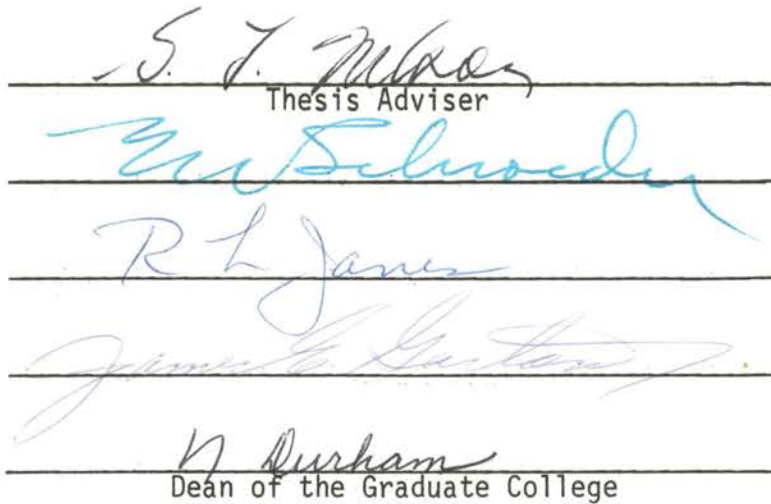 S. J.
Thesis Adviser
Schroeder
R L Janes
James E.
N Durham
Dean of the Graduate College